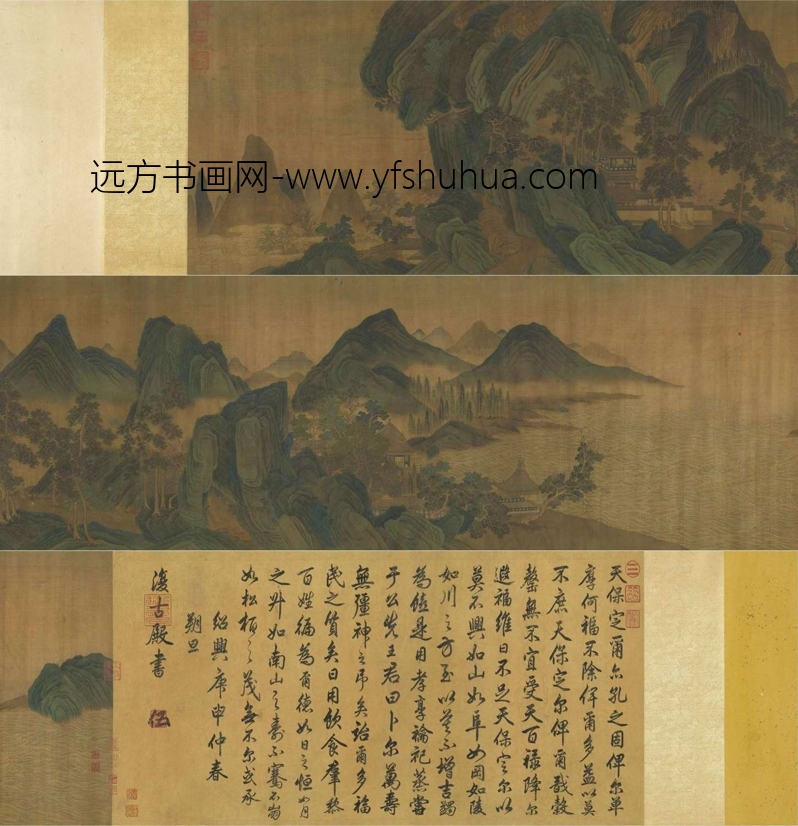 远方书画网-www.yfshuhua.com
天保定爾亦孔之固俾尔单
厚何福不除俾爾多益以莫
不庶天保定尔俾爾戩穀
罄無不宜受天百禄降尔
遐福維日不足天保定尔以
莫不興如山如阜如岡如陵
如川之方至以莫不增吉蠲
為饎是用孝享禴祀蒸嘗
于公先王君曰卜尔萬壽
無疆神之弔矣詒爾多福
民之質矣日用飲食羣黎
百姓徧為爾德如日之恒如月
之升如南山之壽不騫不崩
如松栢之茂無不尔或承
紹興庚申仲春
朔旦
復古殿書
伍